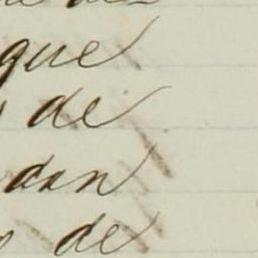 que
de
dan
de